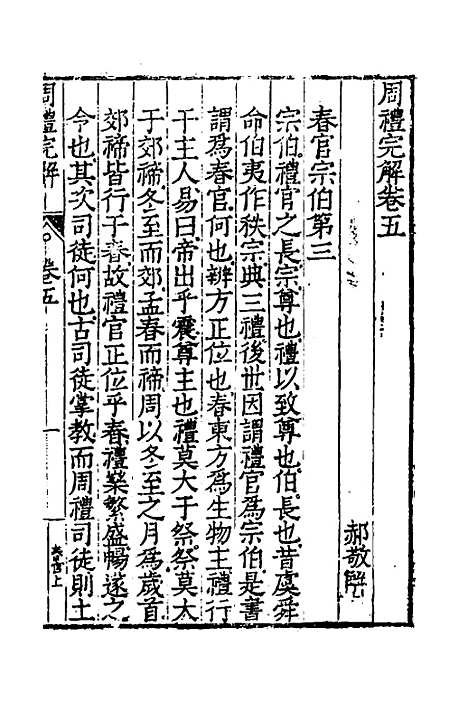 周禮完解卷五
郝敬解
春官宗伯第三
宗伯禮官之長宗尊也禮以致尊也伯長也昔虞舜
命伯夷作秩宗典三禮後世因謂禮官爲宗伯是書
謂爲春官何也辨方正位也春東方爲生物主禮行
于主人易曰帝出乎震尊主也禮莫大于祭祭莫大
于郊禘冬至而郊孟春而禘周以冬至之月爲歲首
郊禘皆行于春故禮官正位乎春禮樂繁盛暢遂之
令也其次司徒何也古司徒掌教而周禮司徒則土
周禮完解
卷五
春官上